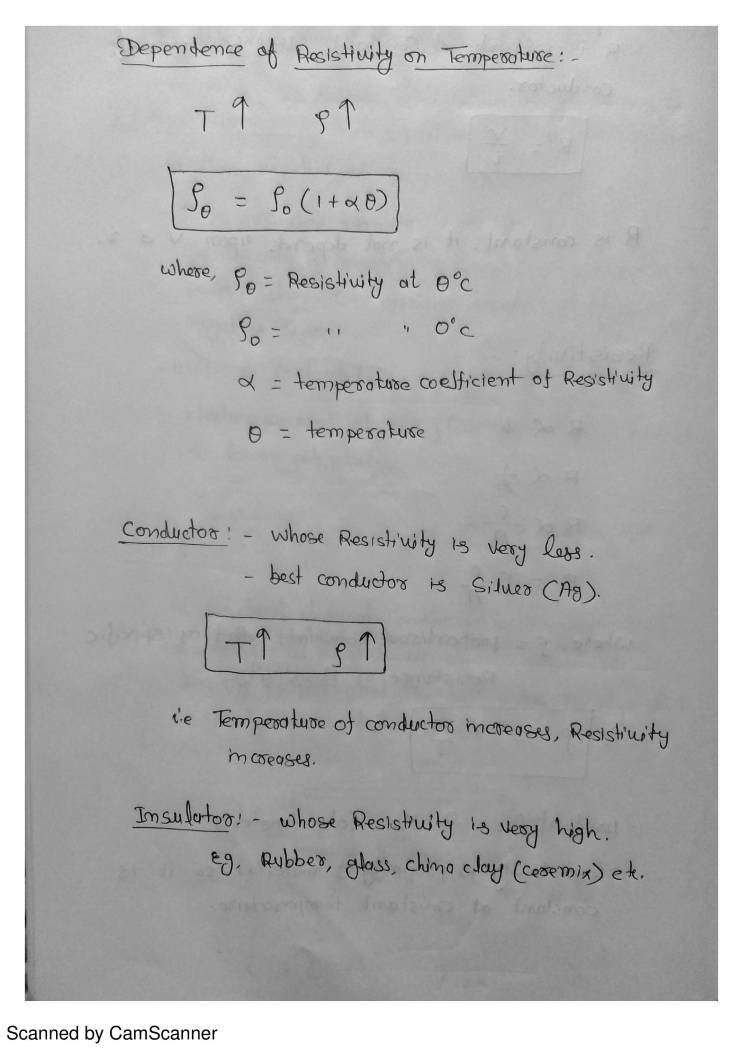 Dependence of Resistivity on Temperature:-
T ↑ ρ ↑
ρθ = ρ0 (1+αθ)
where, ρθ = Resistivity at θ°c
ρ0 = " " 0°c
α = temperature coefficient of Resistivity
θ = temperature
Conductor:- - whose Resistivity is very less.
- best conductor is Silver (Ag).
T ↑ ρ ↑
i.e Temperature of conductor increases, Resistivity
increases.
Insulator:- - whose Resistivity is very high.
Eg. Rubber, glass, china clay (ceremix) etc.
Scanned by CamScanner